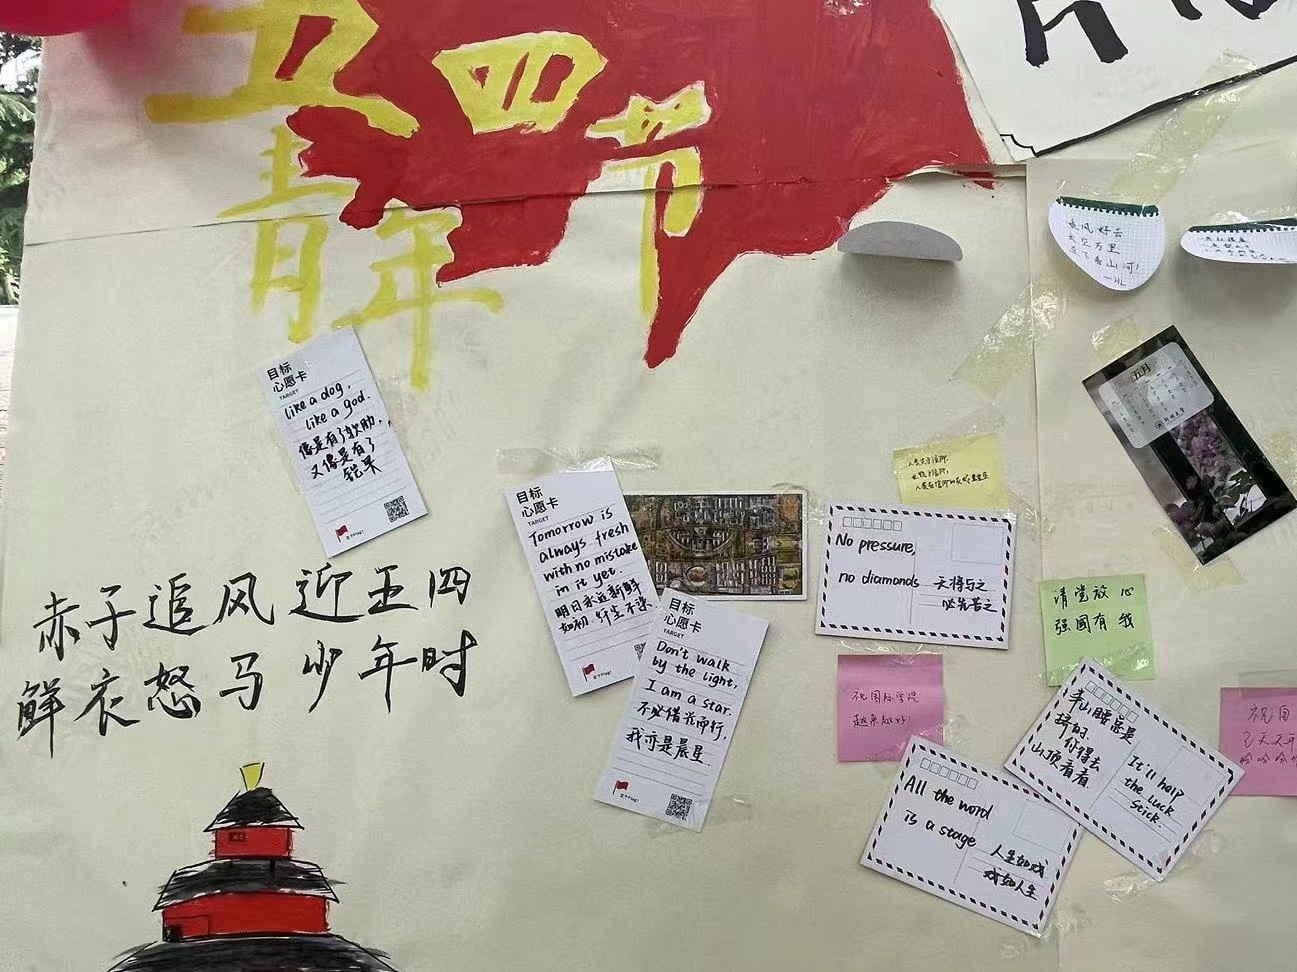 五四
青年
节
乘风好去
长空万里
直下看山河!
—HL
五月
目标
心愿卡
TARGET
like a dog,
like a god.
像是有了软肋,
又像是有了
铠甲
立个Flag!
目标
心愿卡
TARGET
Tomorrow is
always fresh
with no mistake
in it yet.
明日永远新鲜
如初,纤尘不染
立个Flag!
目标
心愿卡
TARGET
Don't walk
by the light,
I am a star.
不必借光而行,
我亦是晨星
立个Flag!
No pressure,
no diamonds
天将与之
必先苦之
请党放心
强國有我
祝国际学院
越来越好!
半山腰总是
挤的,
你得去
山顶看看.
It'll help
the luck
stick.
All the word
is a stage
人生如戏
戏如人生
祝国
哈哈哈
赤子追风近五四
鲜衣怒马少年时